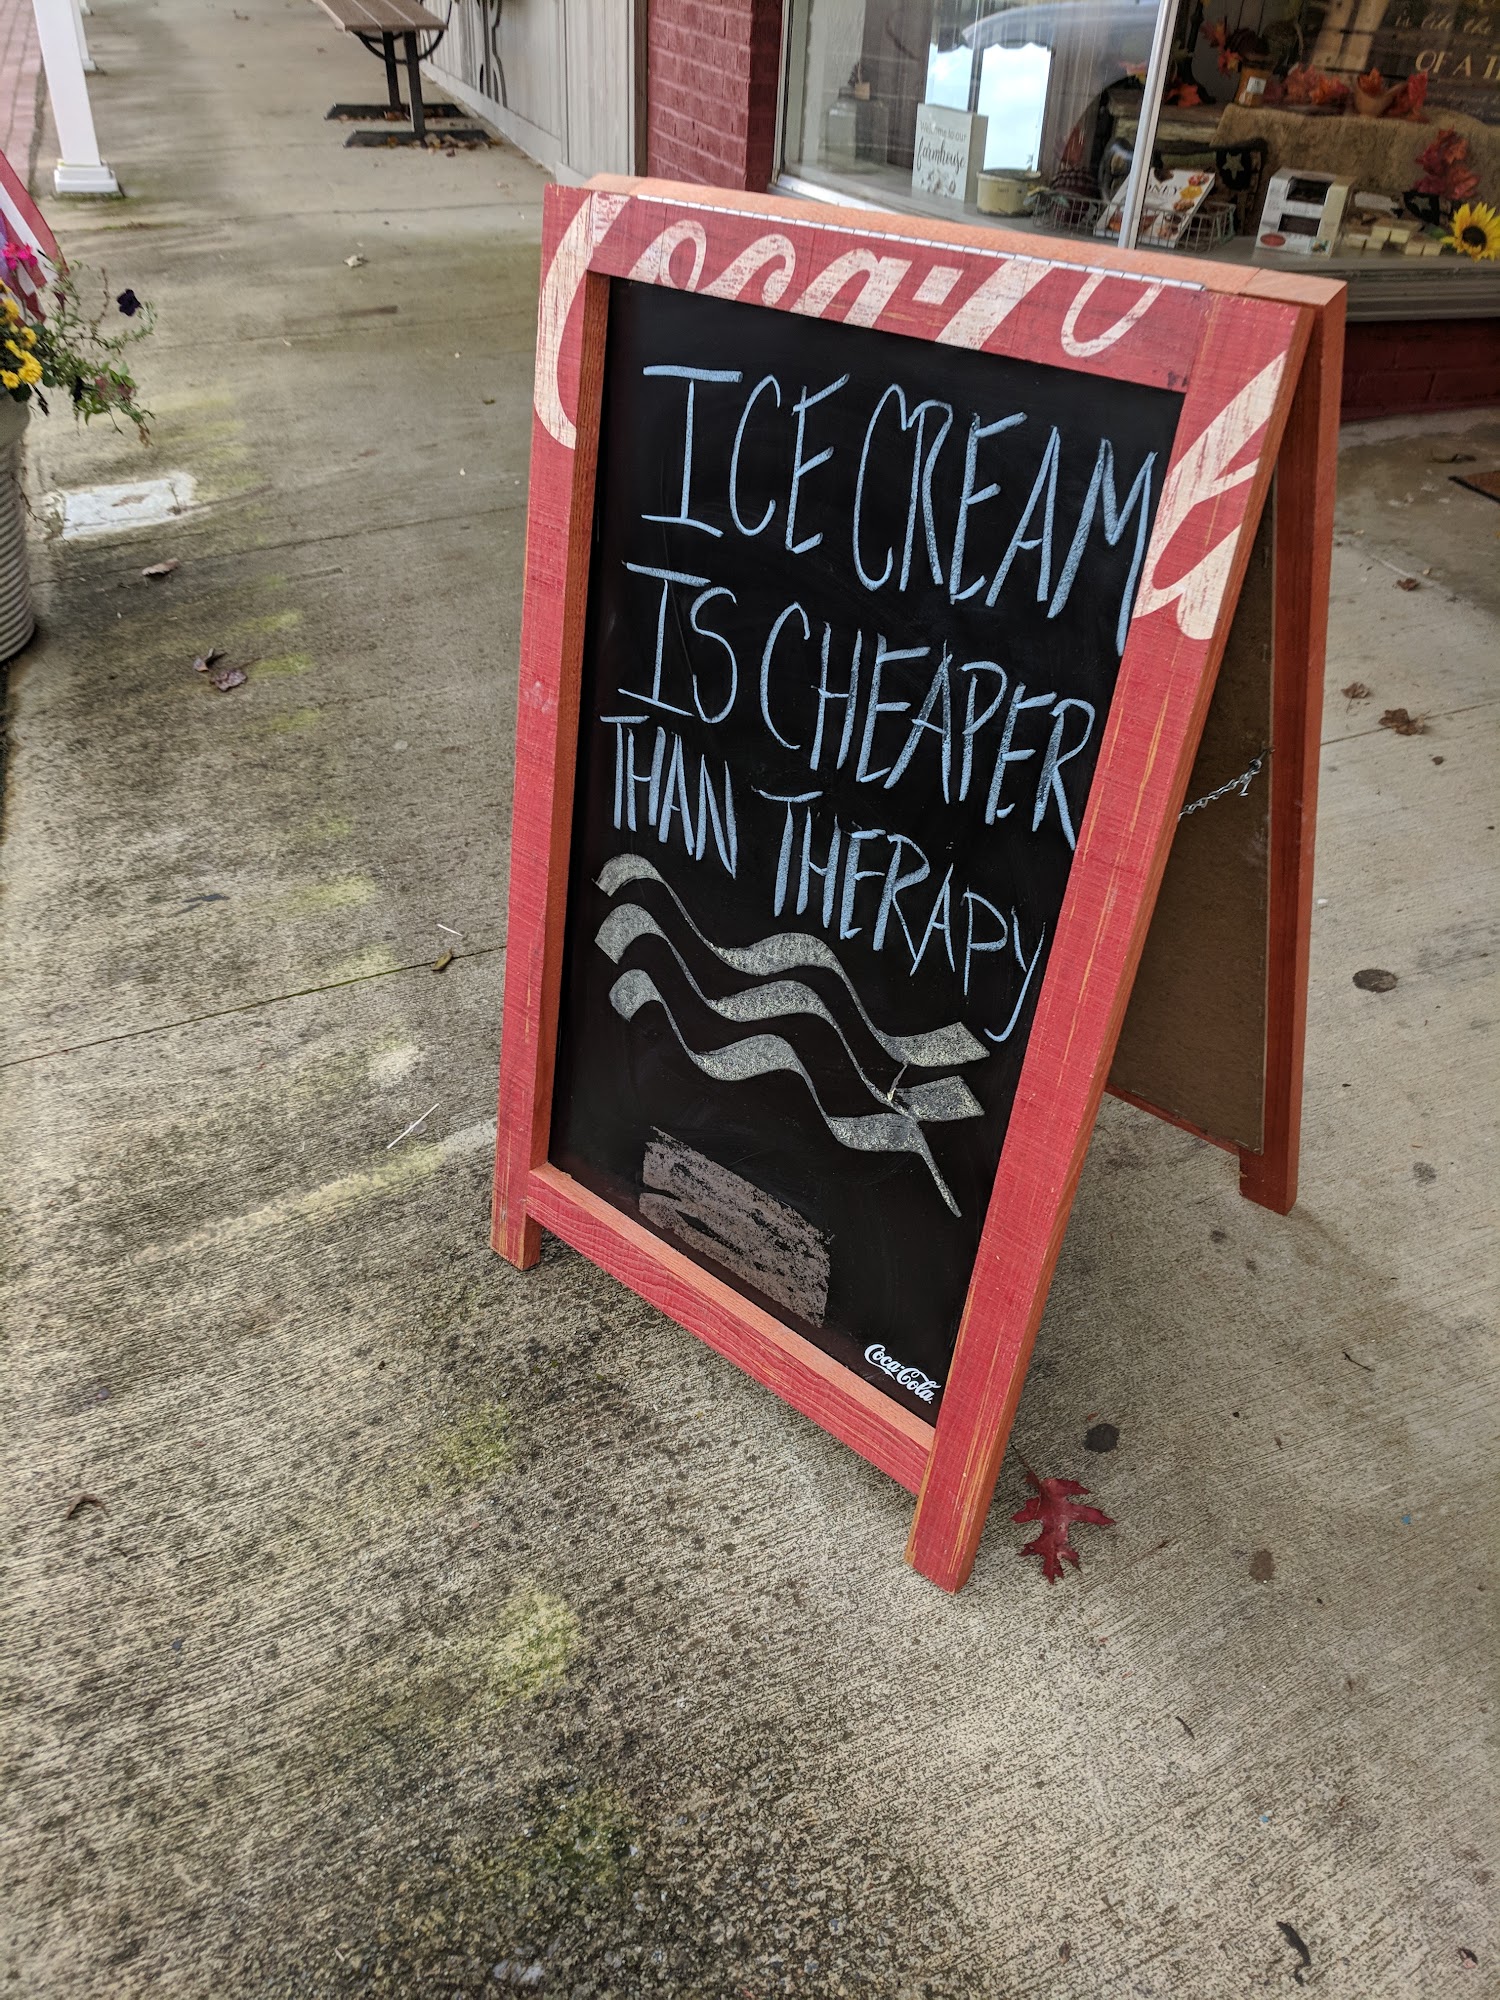 Welcome to our
farmhouse
OF A
Coca-Cola
ICE CREAM
IS CHEAPER
THAN THERAPY
Coca-Cola